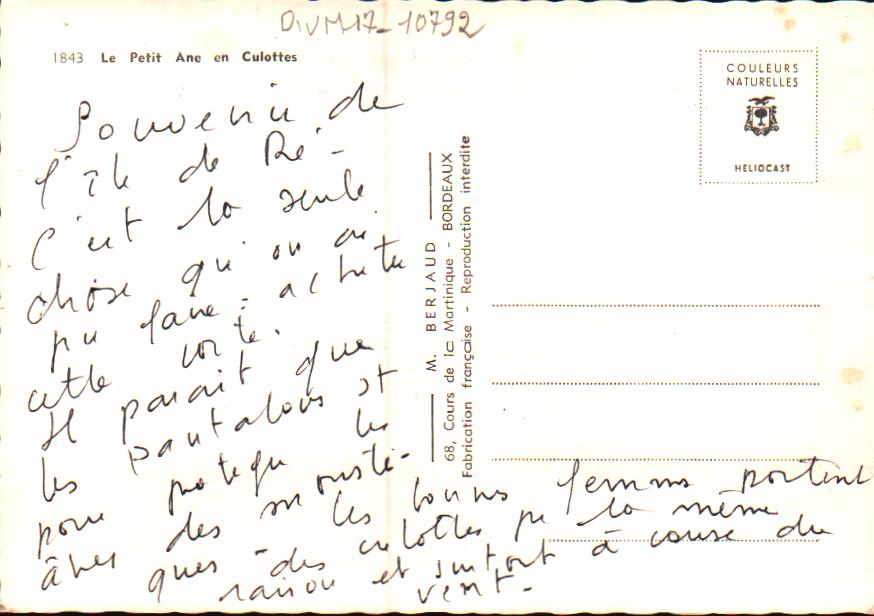 DIVM17-10792
1843 Le Petit Ane en Culottes
COULEURS
NATURELLES
HELIOCAST
M. BERJAUD
68, Cours de la Martinique - BORDEAUX
Fabrication française - Reproduction interdite
Souvenir de
l'île de Ré -
C'est la seule
chose qu'on ai
pu faire : acheter
cette carte.
Il parait que
les pantalons st
pour proteger les
ânes des mousti-
ques - les bonnes femmes portent
des culottes pr la même
raison et surtout à cause du
vent -